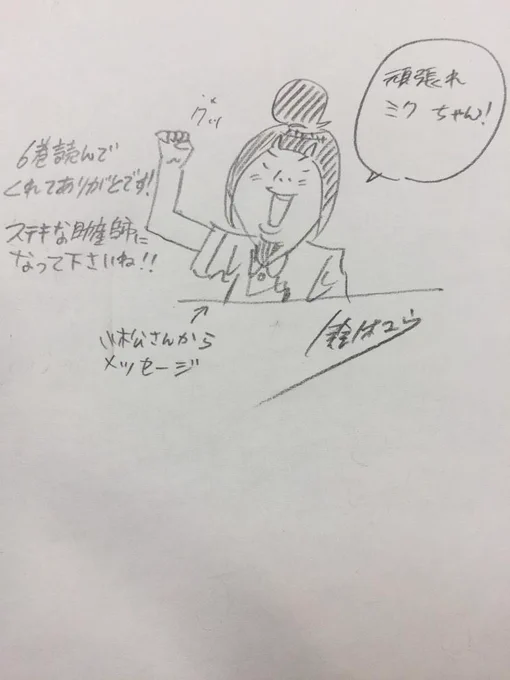 頑張れ
ミク ちゃん!
グッ
6巻読んで
くれてありがとです!
ステキな助産師に
なって下さいね!!
小松さんから
メッセージ